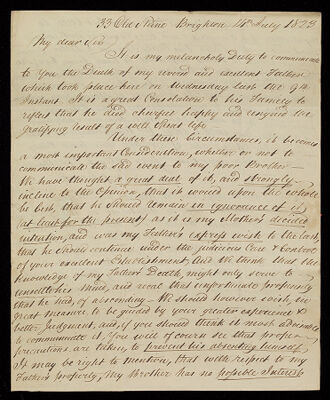 33 Old Steine Brighton 14th July 1823
My dear Sir
It is my melancholy Duty to communicate
to You the Death of my revered and excellent Father
which took place here on Wednesday last the 9th
Instant. It is a great Consolation to his Family to
reflect that he died cheerful happy and resigned the
gratifying result of a well spent life.
Under these Circumstances, it becomes
a most important Consideration, whether or not to
communicate the sad event to my poor Brother—
We have thought a great deal of it, and strongly
incline to the Opinion, that it would upon the whole
be best, that he should remain in ignorance of it
(at least for the present) as it is my Mother's decided
intention, and was my Father's express wish to the last,
that he should continue under the judicious Care & Controul
of your excellent Establishment, and We think that the
knowledge of my Father's Death, might only serve to
unsettle his mind, and recal that unfortunate propensity
that he had, of absconding— We should however wish, in
great measure to be guided by your greater experience &
better Judgment, and, if you should think it most adviseable
to communicate it, You will of course see that proper
precautions are taken, to prevent his absenting himself,
It may be right to mention, that with respect to my
Father's property, My Brother has no possible Interest